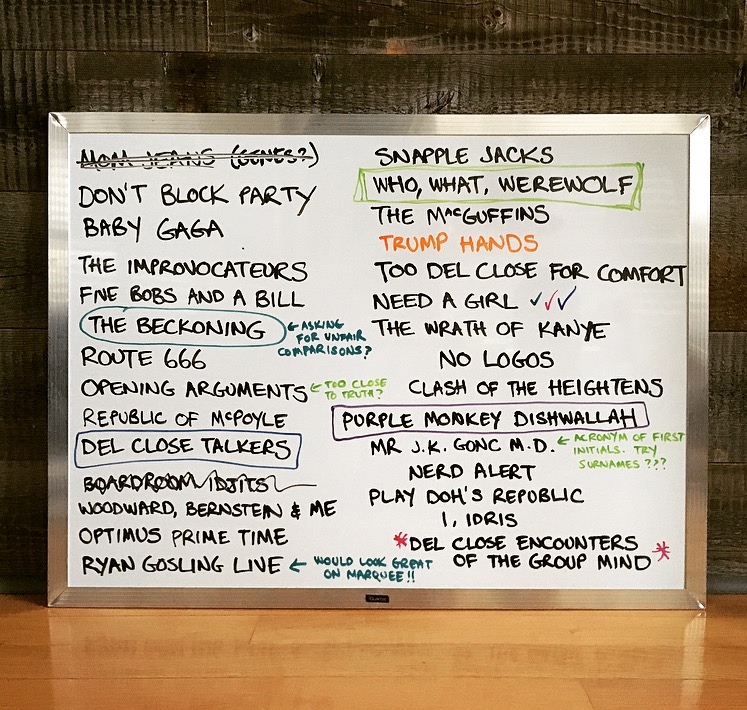 MOM JEANS (GENES?)
DON'T BLOCK PARTY
BABY GAGA
THE IMPROVOCATEURS
FIVE BOBS AND A BILL
THE BECKONING
← ASKING
FOR UNFAIR
COMPARISONS?
ROUTE 666
OPENING ARGUMENTS
← TOO CLOSE
TO TRUTH?
REPUBLIC OF McPOYLE
DEL CLOSE TALKERS
BOARDROOM IDJITS
WOODWARD, BERNSTEIN & ME
OPTIMUS PRIME TIME
RYAN GOSLING LIVE
← WOULD LOOK GREAT
ON MARQUEE!!
SNAPPLE JACKS
WHO, WHAT, WEREWOLF
THE MacGUFFINS
TRUMP HANDS
TOO DEL CLOSE FOR COMFORT
NEED A GIRL ✓✓✓
THE WRATH OF KANYE
NO LOGOS
CLASH OF THE HEIGHTENS
PURPLE MONKEY DISHWALLAH
MR J.K. GONC M.D.
← ACRONYM OF FIRST
INITIALS. TRY
SURNAMES ???
NERD ALERT
PLAY DOH'S REPUBLIC
I, IDRIS
*DEL CLOSE ENCOUNTERS
OF THE GROUP MIND*